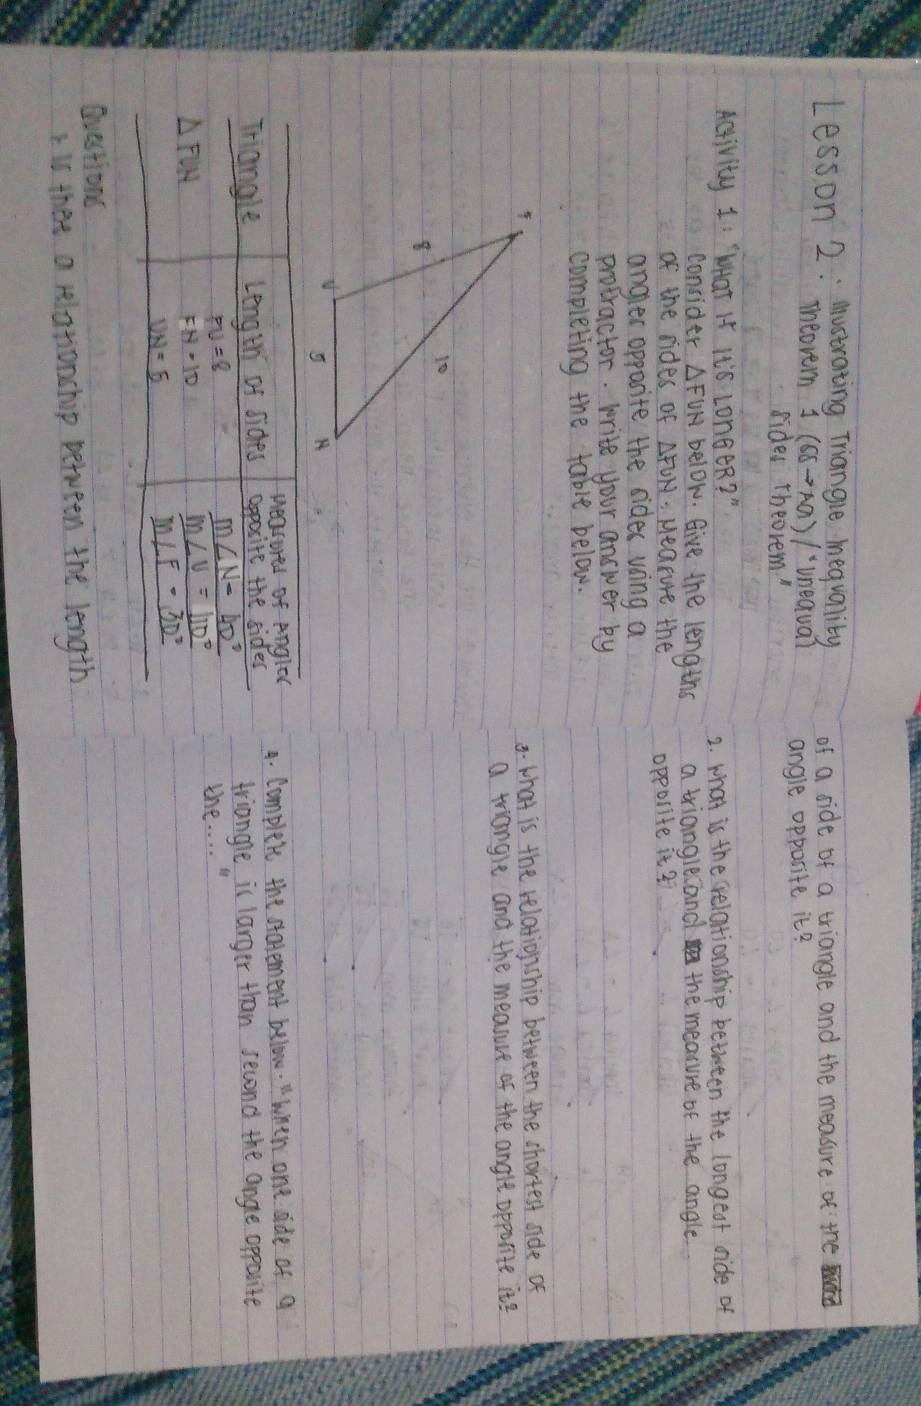 Lesson 2 : Illustrating Triangle Inequality
Theorem 1 (Ss → Aa) / "Unequal
sides theorem"
Activity 1 : "WHAT IF IT'S LONGER?"
Consider △FUN below. Give the lengths
of the sides of △FUN. Measure the
angles opposite the sides using a
protractor. Write your answer by
completing the table below.
F
8
10
U
5
N
Triangle
Length of sides
Measures of Angles
opposite the sides
△ FUN
FU = 8
m∠N = 40°
FN = 10
m∠U = 110°
UN = 5
m∠F = 30°
Questions
1. Is thee a relationship between the length
of a side of a triangle and the measure of the
angle opposite it?
2. What is the relationship between the longest side of
a triangle and the measure of the angle
opposite it?
3. What is the relationship between the shortest side of
a triangle and the measure of the angle opposite it?
4. Complete the statement below. "When one side of a
triangle is larger than second the ange opposite
the...."